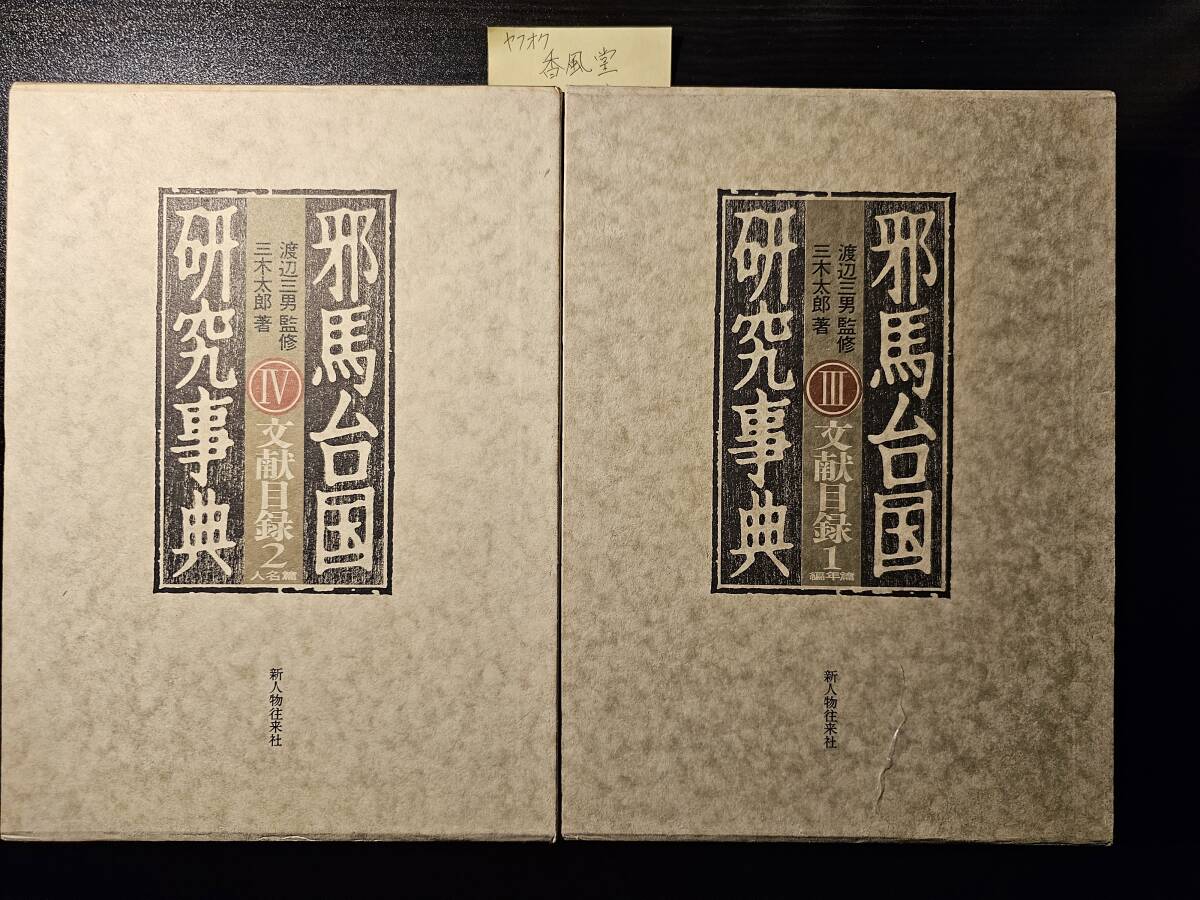 ヤフオク
香風堂
邪馬台国
渡辺三男 監修
三木太郎 著
Ⅳ 文献目録2
人名篇
研究事典
新人物往来社
邪馬台国
渡辺三男 監修
三木太郎 著
Ⅲ 文献目録1
編年篇
研究事典
新人物往来社